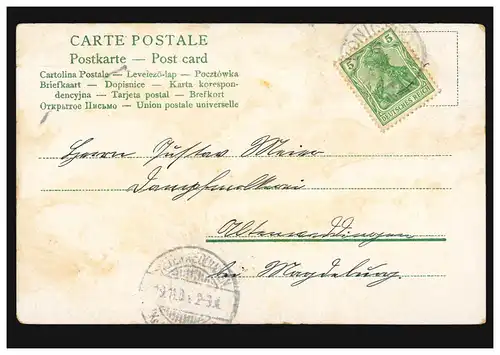 CARTE POSTALE
Postkarte — Post card
Cartolina Postale — Levelező-lap — Pocztówka
Briefkaart — Dopisnice — Karta korespon-
dencyjna — Tarjeta postal — Brefkort
Открытое Письмо — Union postale universelle
5 5
DEUTSCHES REICH
Herrn Gustav Meier
Dampfmolkerei
Altenweddingen
bei Magdeburg.